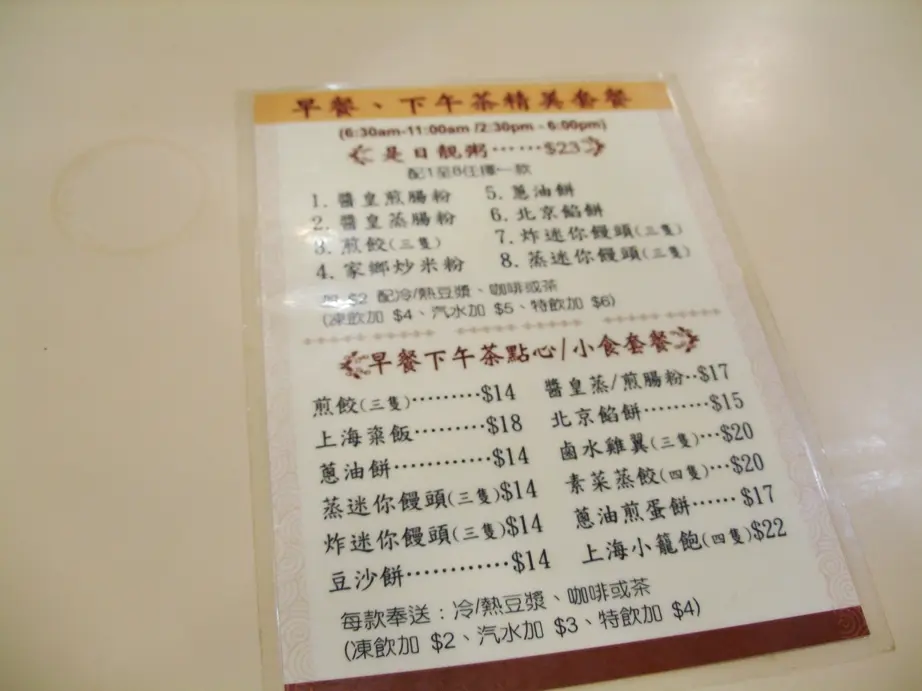 早餐、下午茶精美套餐
(6:30am-11:00am /2:30pm - 6:00pm)
是日靚粥⋯⋯$23
配1至8任擇一款
1. 醬皇煎腸粉
2. 醬皇蒸腸粉
3. 煎餃(三隻)
4. 家鄉炒米粉
5. 蔥油餅
6. 北京餡餅
7. 炸迷你饅頭(三隻)
8. 蒸迷你饅頭(三隻)
加 $2 配冷/熱豆漿、咖啡或茶
(凍飲加 $4、汽水加 $5、特飲加 $6)
早餐下午茶點心/小食套餐
煎餃(三隻)⋯⋯⋯$14
上海粢飯⋯⋯⋯$18
蔥油餅⋯⋯⋯⋯$14
蒸迷你饅頭(三隻)$14
炸迷你饅頭(三隻)$14
豆沙餅⋯⋯⋯⋯$14
醬皇蒸/煎腸粉‥$17
北京餡餅⋯⋯⋯$15
鹵水雞翼(三隻)⋯$20
素菜蒸餃(四隻)⋯$20
蔥油煎蛋餅⋯⋯$17
上海小籠飽(四隻)$22
每款奉送：冷/熱豆漿、咖啡或茶
(凍飲加 $2、汽水加 $3、特飲加 $4)